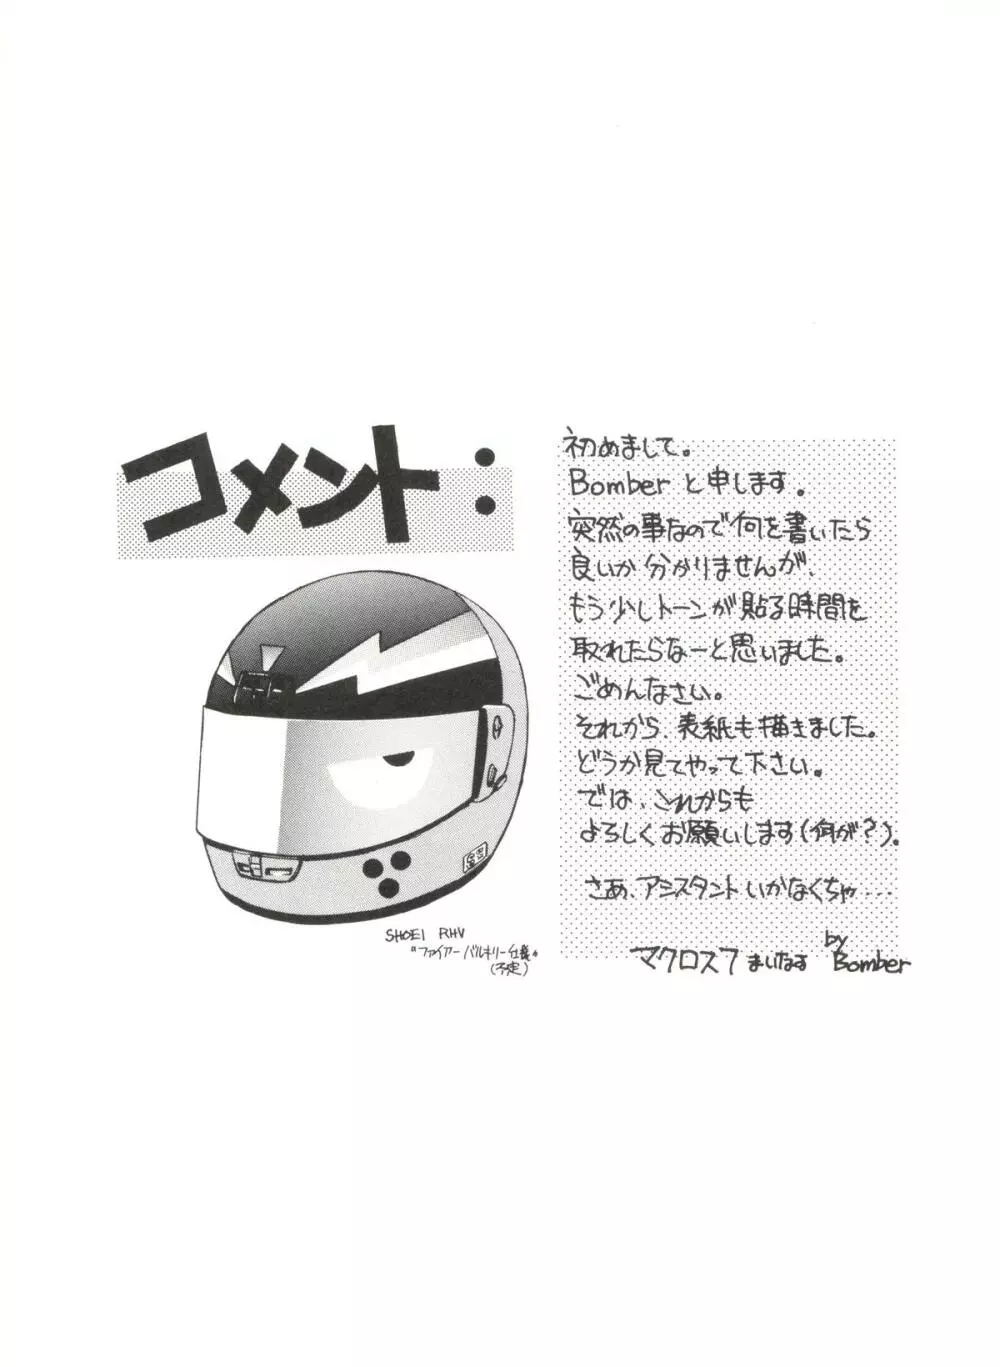 コメント:
初めまして。
Bomberと申します。
突然の事なので何を書いたら
良いか分かりませんが、
もう少しトーンが貼る時間を
取れたらなーと思いました。
ごめんなさい。
それから、表紙も描きました。
どうか見てやって下さい。
では、これからも
よろしくお願いします(何が?)。
さあ、アシスタントいかなくちゃ...
マクロス7まいなす by Bomber
SHOEI RHV
"ファイアーバルキリー仕様"
(予定)